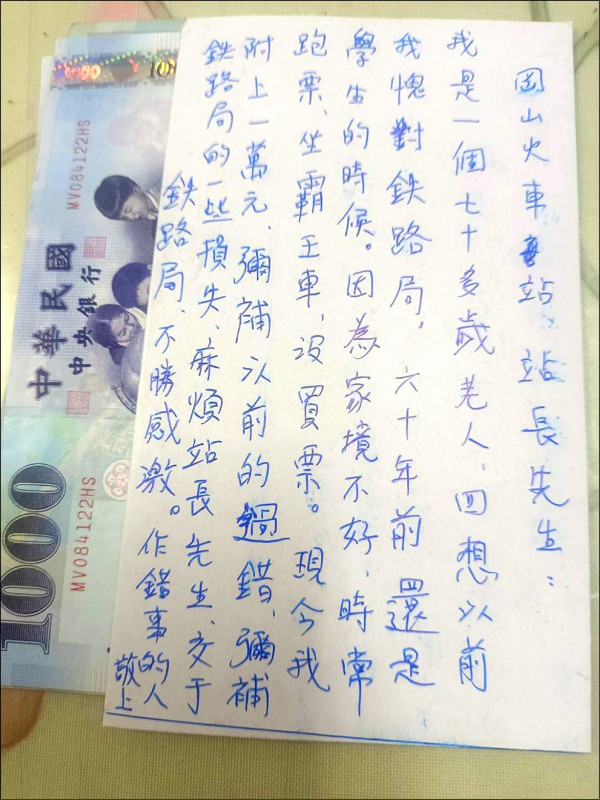 岡山火車站、站長先生：
我是一個七十多歲老人、回想以前
我愧對鉄路局。六十年前還是
學生的時候。因為家境不好、時常
跑票、坐霸王車、沒買票。現今我
附上一萬元、彌補以前的過錯、彌補
鉄路局的一些損失、麻煩站長先生、交于
鉄路局、不勝感激。作錯事的人
敬上
中華民國
中央銀行
1000
MV084122HS
MV084122HS